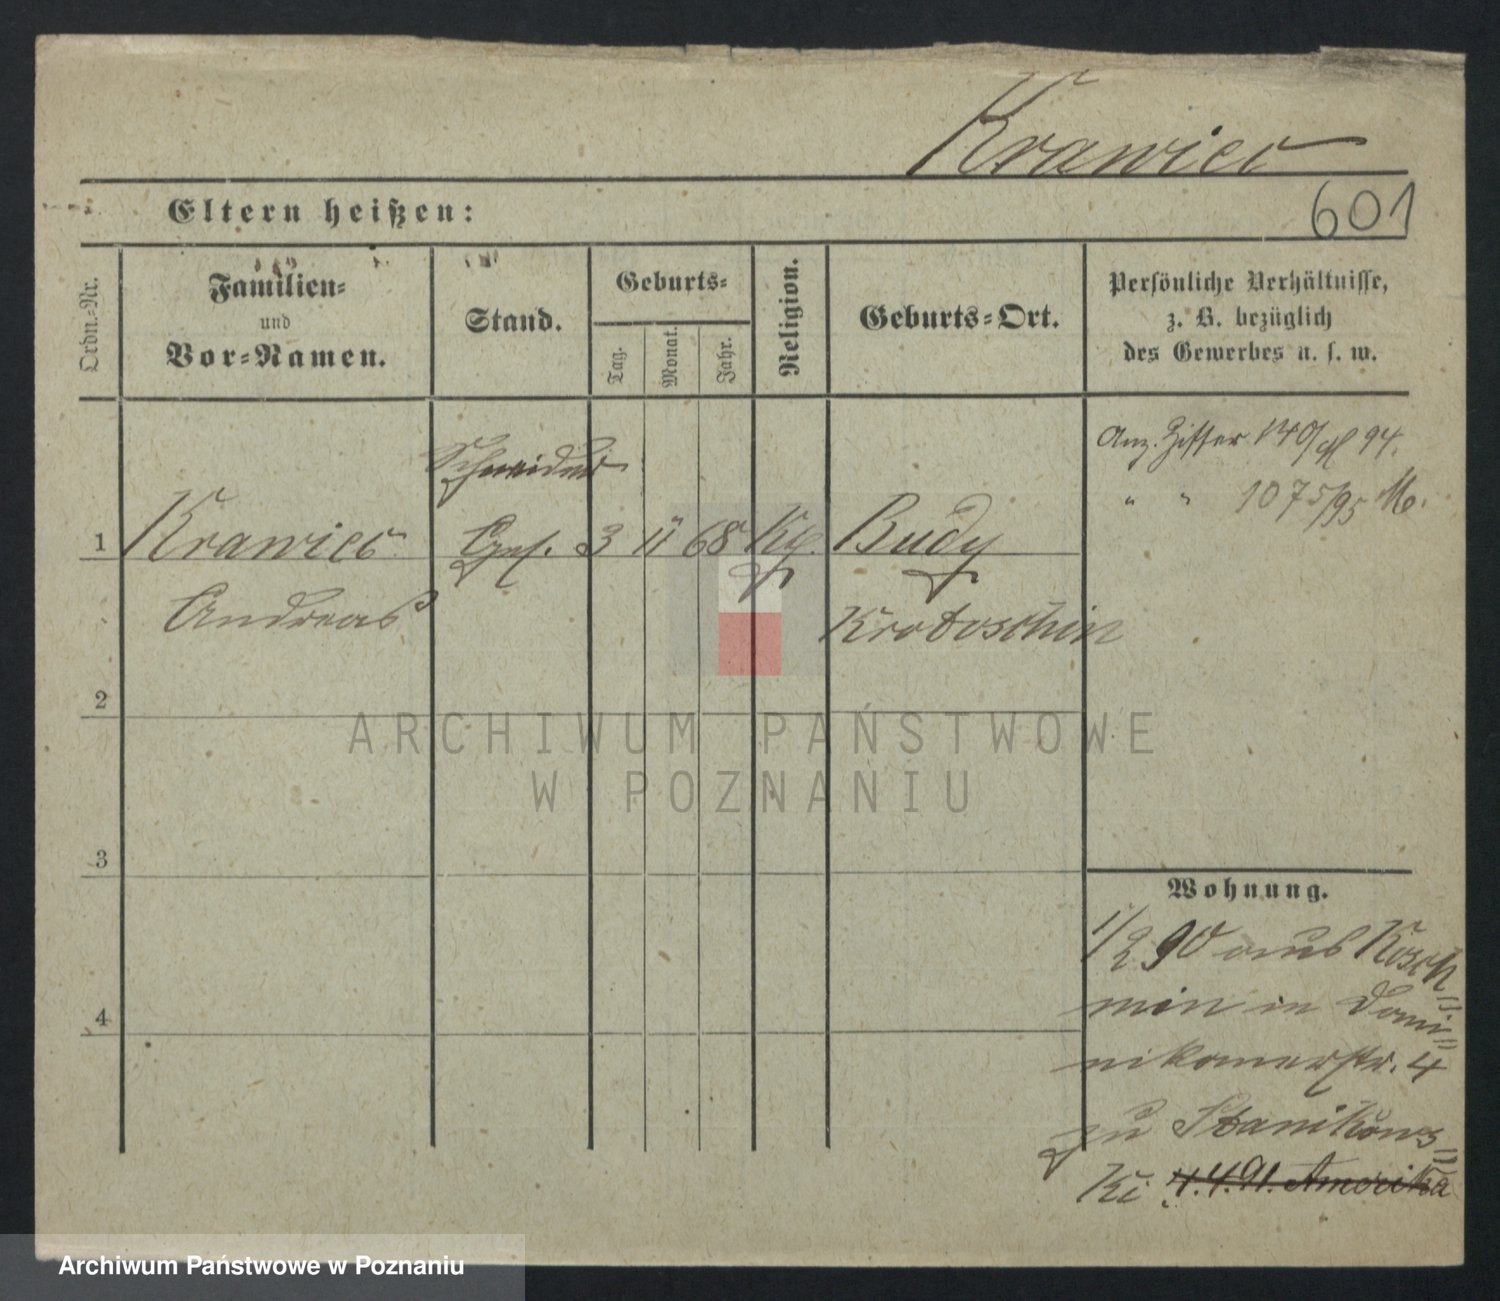 Krawiec
601
Eltern heißen:
Ordn.-Nr.
Familien-
und
Vor-Namen.
Stand.
Geburts-
Tag.
Monat.
Jahr.
Religion.
Geburts-Ort.
Persönliche Verhältnisse,
z. B. bezüglich
des Gewerbes u. s. w.
1
Krawiec
Andreas
Schneider
Ges.
3
11
68
Kth.
Budy
Krotoschin
Anz. Ziffer 140/ 94.
" " 1075/95 M.
2
3
4
Wohnung.
1/2 90 aus Kosch=
min in Domi=
nikanerstr. 4
zu Stanikows=
ki 4.4.91. Amerika
ARCHIWUM PAŃSTWOWE
W POZNANIU
Archiwum Państwowe w Poznaniu